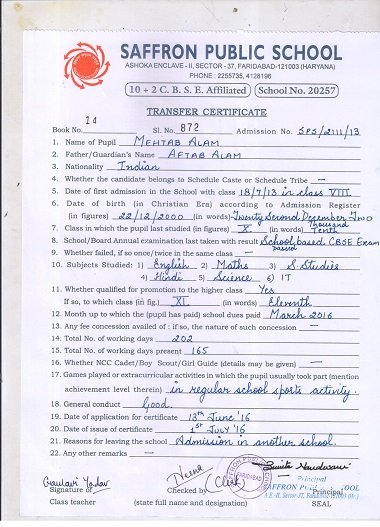 SAFFRON PUBLIC SCHOOL
ASHOKA ENCLAVE - II, SECTOR - 37, FARIDABAD-121003 (HARYANA)
PHONE : 2255735, 4128196
10 + 2 C. B. S. E. Affiliated School No. 20257
TRANSFER CERTIFICATE
Book No. Sl. No. 872 Admission No. SPS/2111/13
1. Name of Pupil MEHTAB ALAM
2. Father/Guardian's Name AFTAB ALAM
3. Nationality Indian
4. Whether the candidate belongs to Schedule Caste or Schedule Tribe —
5. Date of first admission in the School with class 18/7/13 in class VIII
6. Date of birth (in Christian Era) according to Admission Register
(in figures) 22/12/2000 (in words) Twenty Second December Two Thousand
7. Class in which the pupil last studied (in figures) X (in words) Tenth
8. School/Board Annual examination last taken with result School based CBSE Exam passed
9. Whether failed, if so once/twice in the same class —
10. Subjects Studied: 1) English 2) Maths 3) S. Studies
4) Hindi 5) Science 6) IT
11. Whether qualified for promotion to the higher class Yes
If so, to which class (in fig.) XI (in words) Eleventh
12. Month up to which the (pupil has paid) school dues paid March 2016
13. Any fee concession availed of : if so, the nature of such concession —
14. Total No. of working days 202
15. Total No. of working days present 165
16. Whether NCC Cadet/Boy Scout/Girl Guide (details may be given) —
17. Games played or extracurricular activities in which the pupil usually took part (mention
achievement level therein) in regular school sports activity.
18. General conduct Good.
19. Date of application for certificate 13th June '16
20. Date of issue of certificate 1st July '16
21. Reasons for leaving the school Admission in another school.
22. Any other remarks —
Gaurav Yadav
Signature of
Class teacher
Heena
Checked by (Clerk)
(state full name and designation)
Principal
SAFFRON PUBLIC SCHOOL
A.E.-II, Sector-37, Faridabad
Principal
SEAL